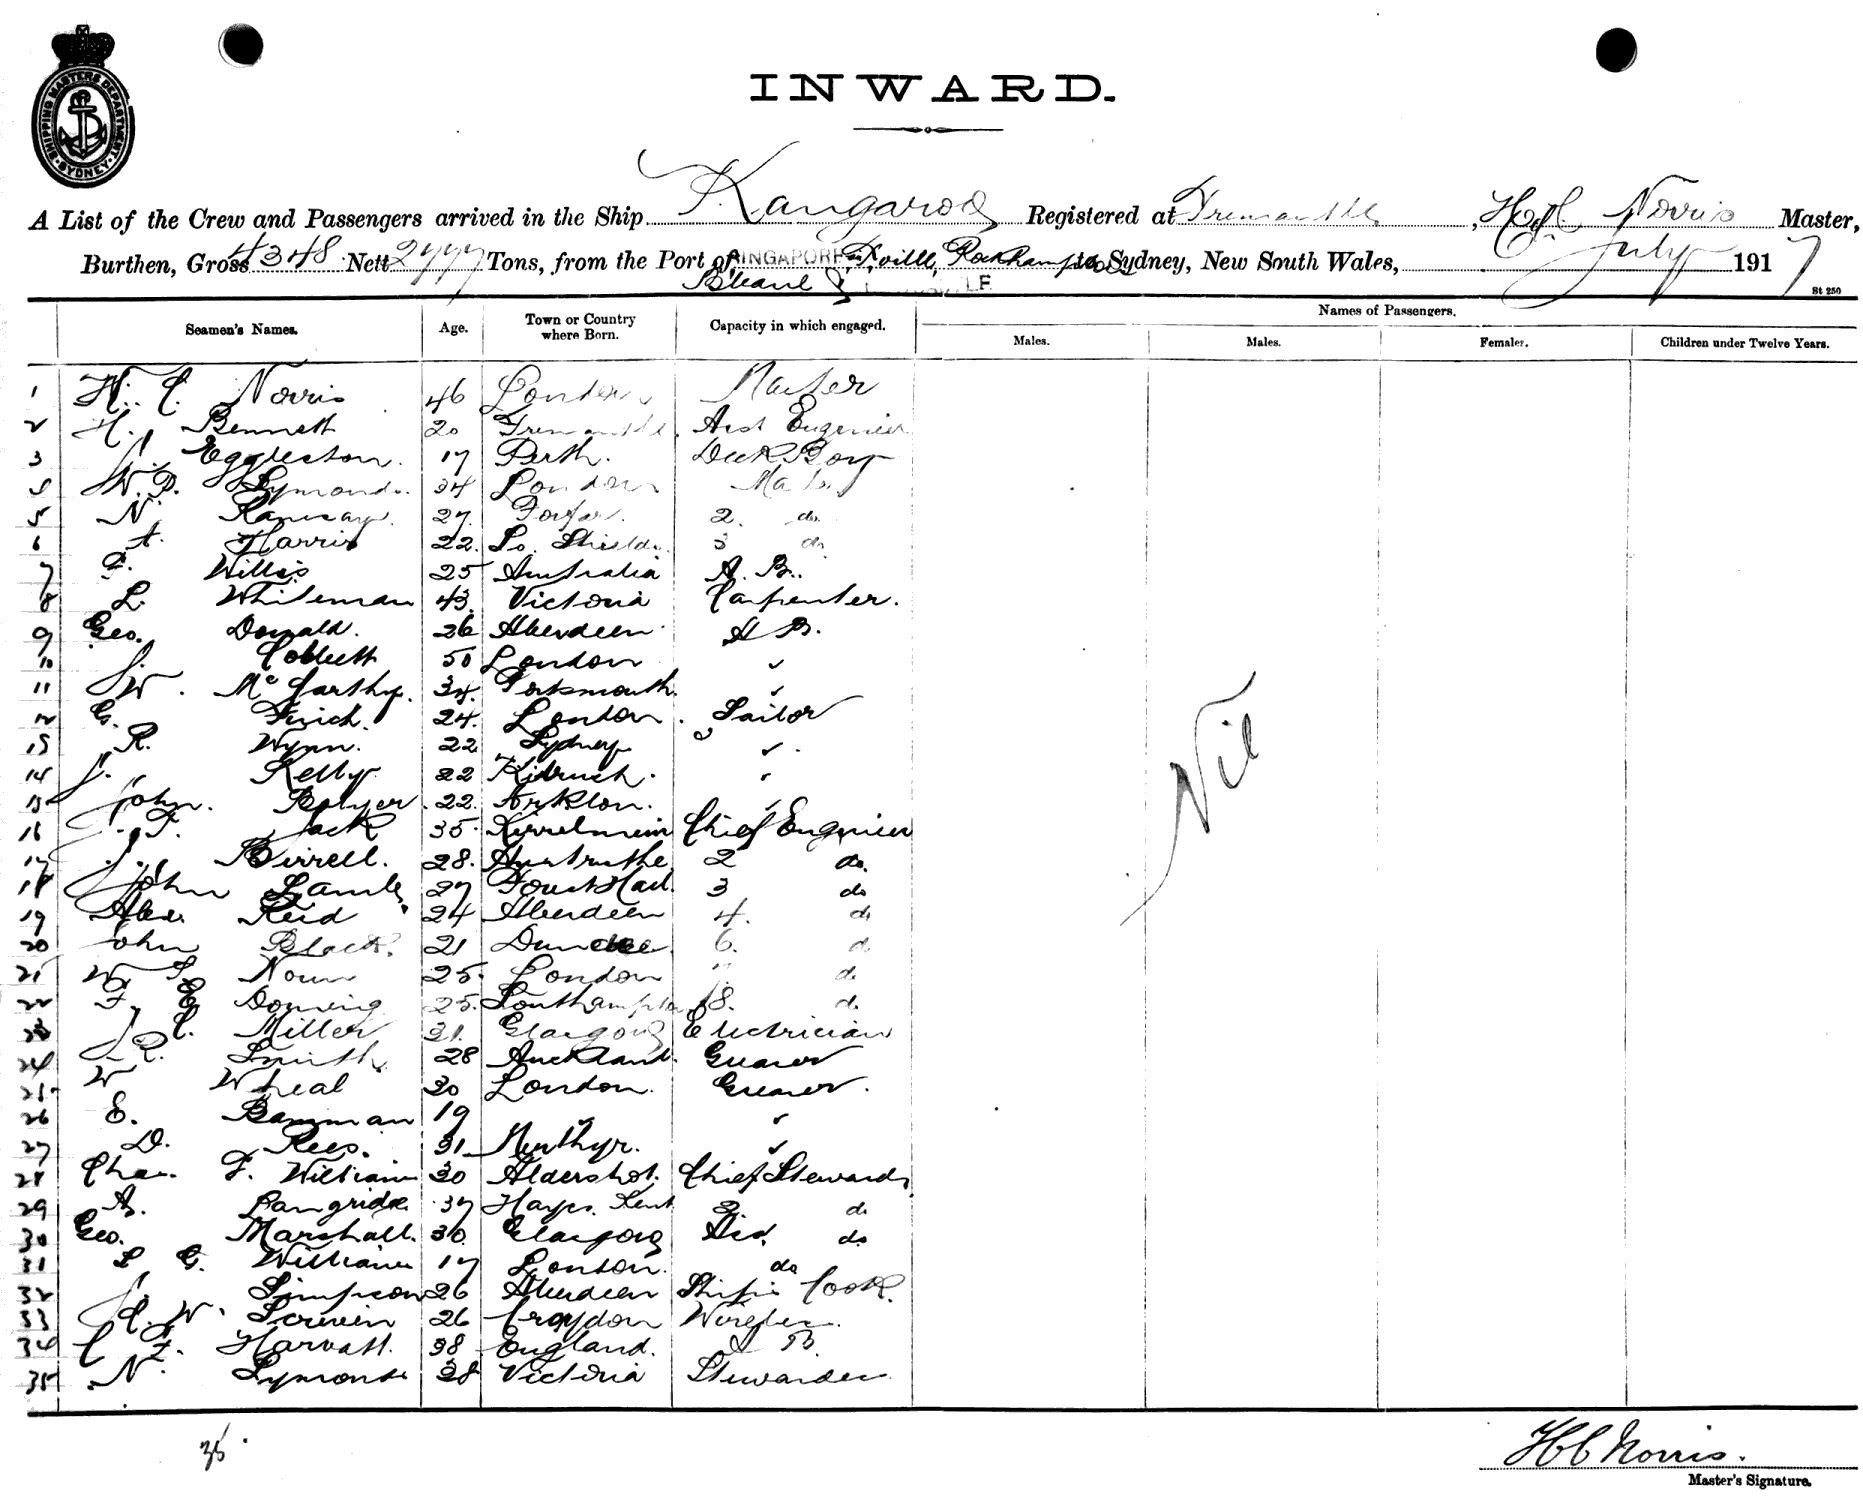 SHIPPING MASTERS DEPARTMENT · SYDNEY ·
INWARD.
A List of the Crew and Passengers arrived in the Ship Kangaroo Registered at Fremantle, H. C. Norris Master,
Burthen, Gross 4348 Nett 2777 Tons, from the Port of SINGAPORE T'ville, Rockhampton to Sydney, New South Wales, July 1917
St 250
Seamen's Names. Age. Town or Country where Born. Capacity in which engaged. Names of Passengers.
Males. Males. Females. Children under Twelve Years.
1 H. C. Norris 46 London Master
2 H. Bennett 20 Fremantle Asst Engenier
3 Eggleston. 17 Perth. Deck Boy
4 W. D. Symonds. 34 London Mate
5 N. Ramsay. 27. Forfar. 2. do
6 A. Harris 22. So. Shields. 3 do
7 F. Willis 25 Australia A. B.
8 L. Whiteman 43. Victoria Carpenter.
9 Geo. Donald. 26 Aberdeen A B.
10 J. Cobbett 50 London "
11 W. McCarthy. 34. Portsmouth. "
12 G. Finich. 24. London. Sailor
13 R. Wynn. 22 Sydney "
14 J. Kelly. 22 "
15 John. 22. Arklow. "
16 J. F. Jack 35. Chief Engenier
17 J. Birrell. 28. Anstruthe 2 do.
18 John Lamb 27 3 do
19 Alex Reid 24 Aberdeen 4. do
20 John Black. 21 Dundee 6. do
21 W. Nown 25. London " do
22 F. E. 25. Southampton 8. do
23 J. C. Miller 31. Glasgow Electrician
24 R. Smith 28 Auckland. Greaser
25 W Wheal 30 London. Greaser.
26 E. 19 " "
27 D. Rees. 31 Merthyr. "
28 Chas. F. Williams 30 Aldershot. Chief Steward
29 A. Langridge 37 Hayes. Kent 2. do
30 Geo. Marshall. 30. Glasgow Ass. do
31 L G. Williams 17 London. do
32 J. Simpson 26 Aberdeen Ship's Cook.
33 C. W. Scriven 26 Croydon Wireless.
34 C F. 38 England. A B.
35 N. Symonds 38 Victoria Stewardess
Nil
35.
H C Norris.
Master's Signature.